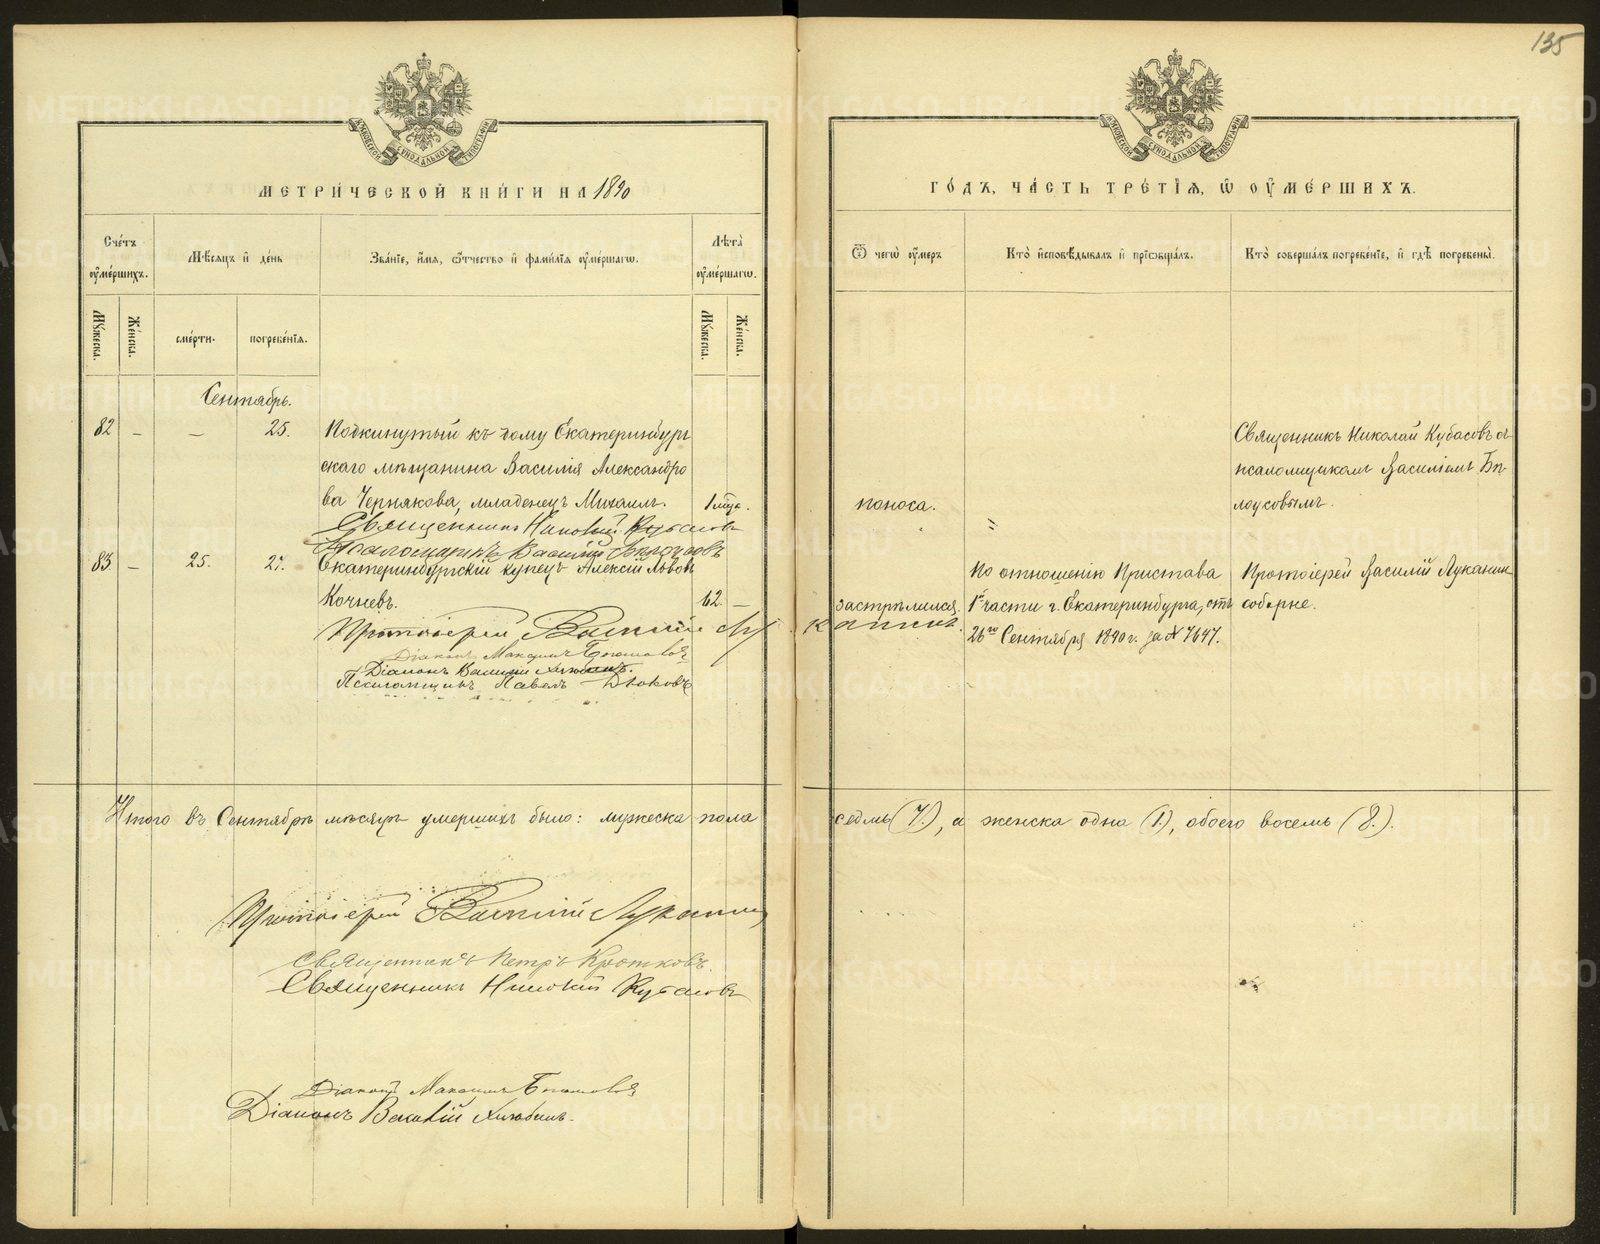 135
МЕТРИЧЕСКОЙ КНИГИ НА 1890
ГОДЪ, ЧАСТЬ ТРЕТІЯ, Ѿ ОУМЕРШИХЪ.
Счетъ оумершихъ.
Мѣсяцъ и день
Званіе, имя, отчество и фамилія оумершагѡ.
Лѣта оумершагѡ.
Ѿ чегѡ оумеръ
Кто исповѣдывалъ и пріобщалъ.
Кто совершалъ погребеніе, и гдѣ погребены.
Мужеска.
Женска.
смерти.
погребенія.
Мужеска.
Женска.
Сентябрь.
82 – – 25.
Подкинутый къ дому Екатеринбург
скаго мѣщанина Василія Александро
ва Чернякова, младенецъ Михаилъ.
1 мѣс.
поноса.
Священникъ Николай Кубасовъ съ
псаломщикомъ Василіемъ Бѣ-
лоусовымъ.
Священникъ Николай Кубасовъ
Псаломщикъ Василій Бѣлоусовъ
83. – 25. 27.
Екатеринбургскій купецъ Алексій Львовъ
Кочневъ.
62. –
застрѣлился.
По отношенію Пристава
1й части г. Екатеринбурга, отъ
26го Сентября 1890 г. за № 7647.
Протоіерей Василій Луканин
соборне.
Протоіерей Василій Луканинъ.
Діаконъ Максимъ
Діаконъ Василій
Псаломщикъ Павелъ Дьяковъ
Итого въ Сентябрѣ мѣсяцѣ умершихъ было: мужеска пола
седмь (7.), а женска одна (1.), обоего восемь (8.).
Протоіерей Василій Луканинъ
Священникъ Петръ Кротковъ.
Священникъ Николай Кубасовъ
Діаконъ Максимъ
Діаконъ Василій
METRIKI.GASO-URAL.RU